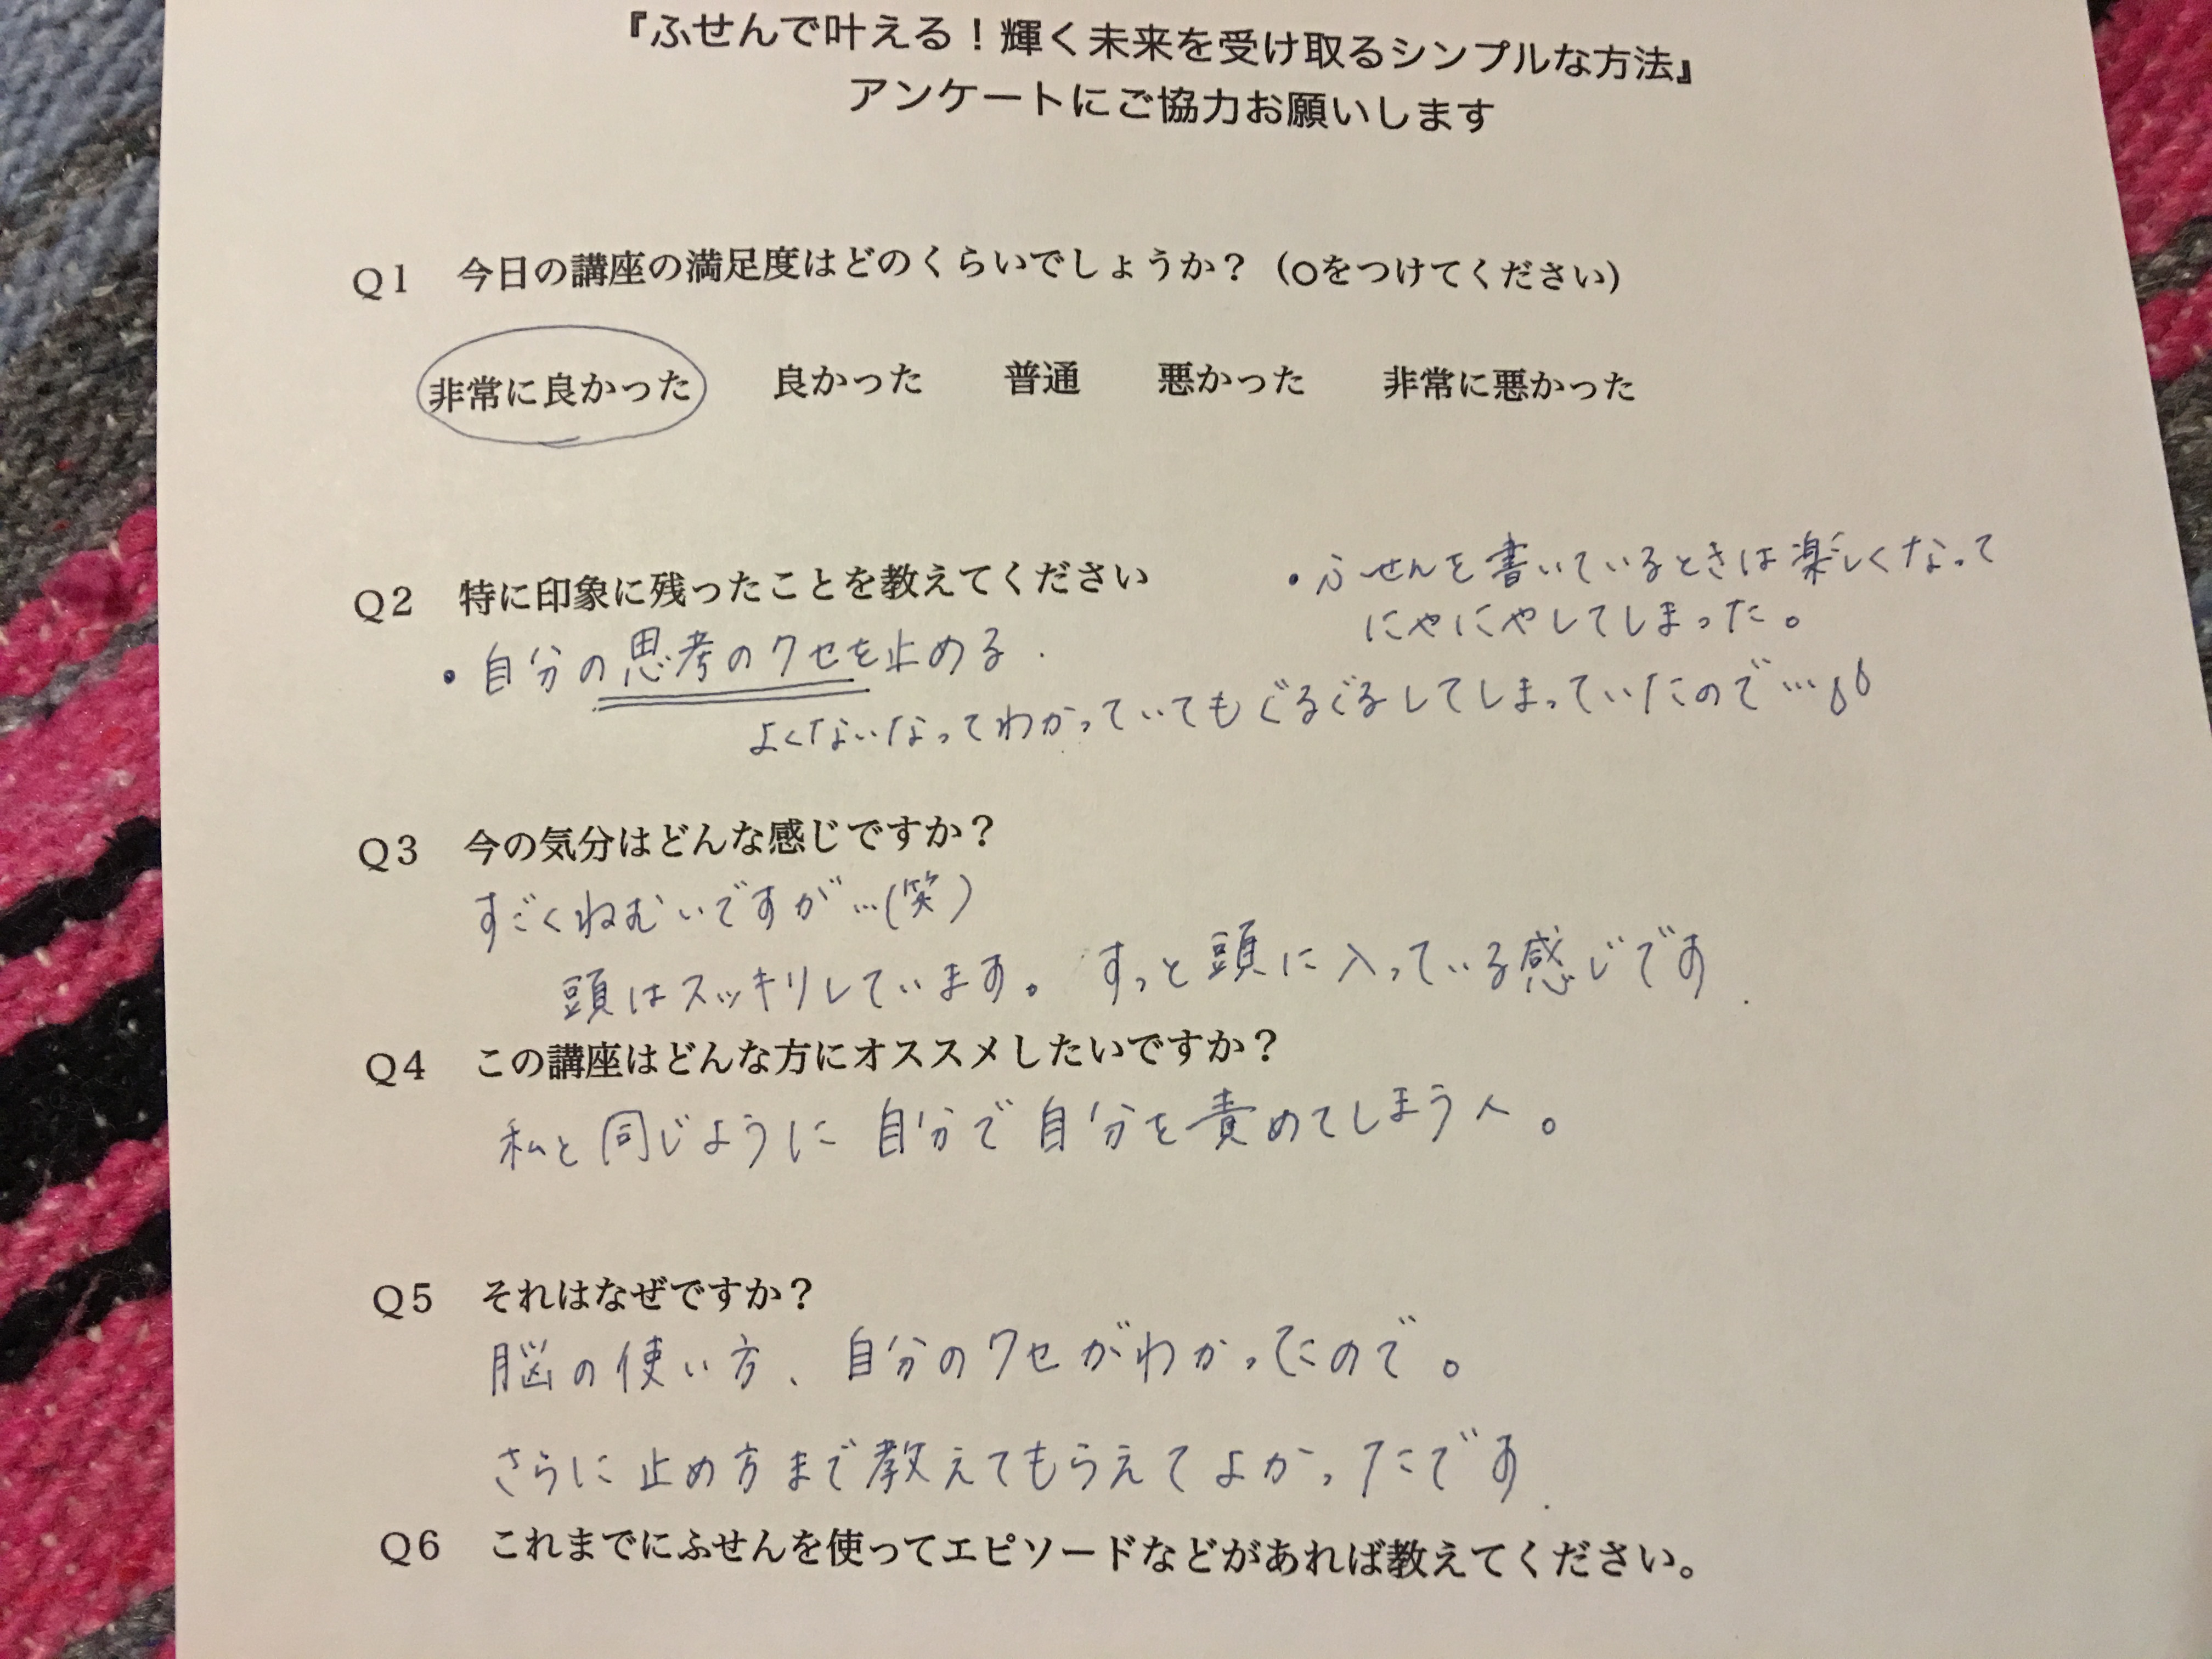 『ふせんで叶える！輝く未来を受け取るシンプルな方法』
アンケートにご協力お願いします
Q1 今日の講座の満足度はどのくらいでしょうか？（○をつけてください）
非常に良かった 良かった 普通 悪かった 非常に悪かった
Q2 特に印象に残ったことを教えてください
・自分の思考のクセを止める.
よくないなってわかっていてもぐるぐるしてしまっていたので…
・ふせんを書いているときは楽しくなって
にやにやしてしまった。
Q3 今の気分はどんな感じですか？
すごくねむいですが…(笑)
頭はスッキリしています。すっと頭に入っている感じです.
Q4 この講座はどんな方にオススメしたいですか？
私と同じように自分で自分を責めてしまう人。
Q5 それはなぜですか？
脳の使い方、自分のクセがわかったので。
さらに止め方まで教えてもらえてよかったです.
Q6 これまでにふせんを使ってエピソードなどがあれば教えてください。